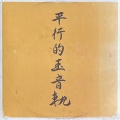 平行的五音軌